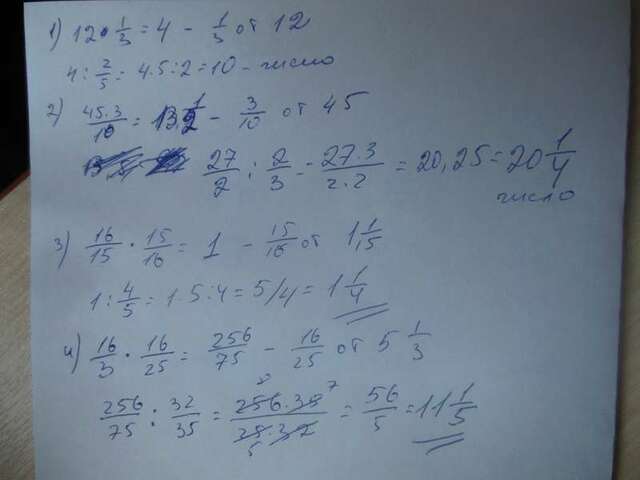 1) 12 · 1/3 = 4 - 1/3 от 12
4 : 2/5 = 4·5:2 = 10 - число
2) 45·3/10 = 13 1/2 - 3/10 от 45
27/2 : 2/3 = 27·3/2·2 = 20,25 = 20 1/4
число
3) 16/15 · 15/16 = 1 - 15/16 от 1 1/15
1 : 4/5 = 1·5:4 = 5/4 = 1 1/4
4) 16/3 · 16/25 = 256/75 - 16/25 от 5 1/3
256/75 : 32/35 = 56/5 = 11 1/5